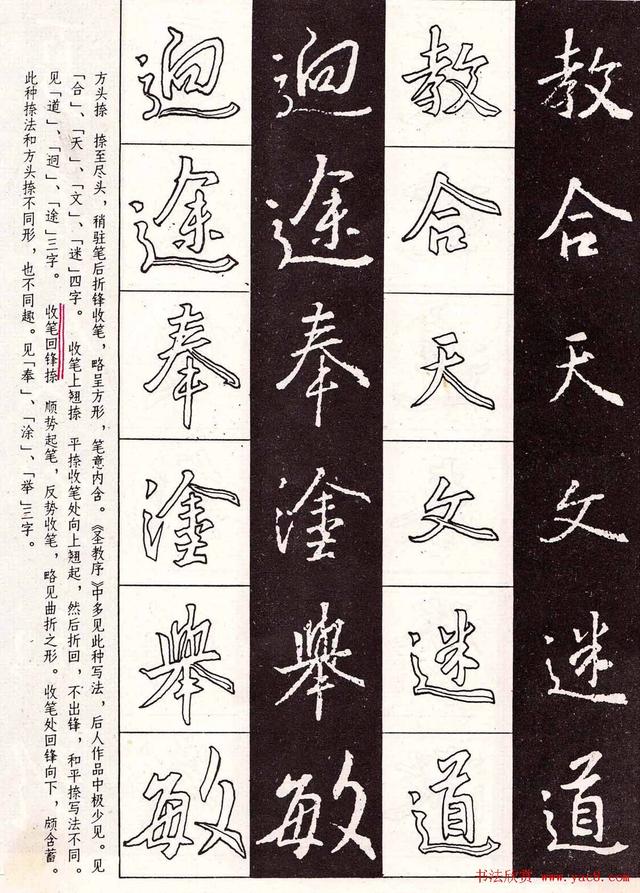 教合天文迷道
教合天文迷道
逈途奉塗舉敏
逈途奉塗舉敏
方头捺　捺至尽头，稍驻笔后折锋收笔，略呈方形，笔意内含。《圣教序》中多见此种写法，后人作品中极少见。见
「合」、「天」、「文」、「迷」四字。　收笔上翘捺　平捺收笔处向上翘起，然后折回，不出锋，和平捺写法不同。
见「道」、「迥」、「途」三字。　收笔回锋捺　顺势起笔，反势收笔，略见曲折之形。收笔处回锋向下，颇含蓄。
此种捺法和方头捺不同形，也不同趣。见「奉」、「涂」、「举」三字。
书法欣赏 www.yac8.com